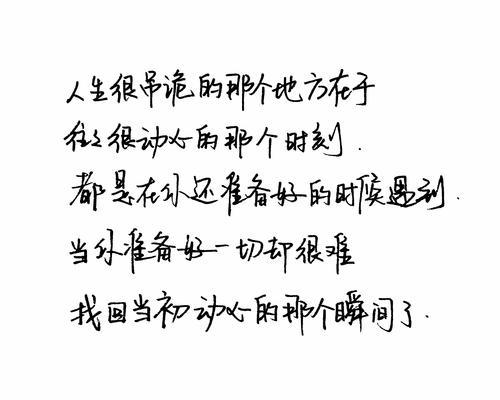 人生很吊诡的那个地方在于
往々很动心的那个时刻.
都是在你还准备好的时候遇到.
当你准备好一切却很难
找回当初动心的那个瞬间了.